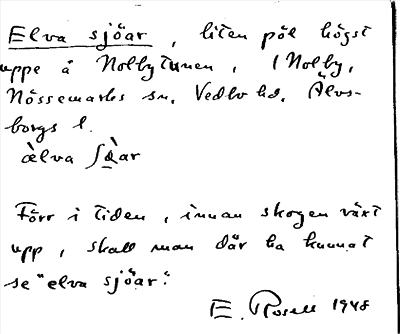 Elva sjöar, liten pöl högst
uppe å Nolbytunen, i Nolby,
Nössemarks sn, Vedbo hd, Älvs-
borgs l.
ælva ʃàar
Förr i tiden, innan skogen växt
upp, skall man där ha kunnat
se "elva sjöar."
E. Rosell 1948